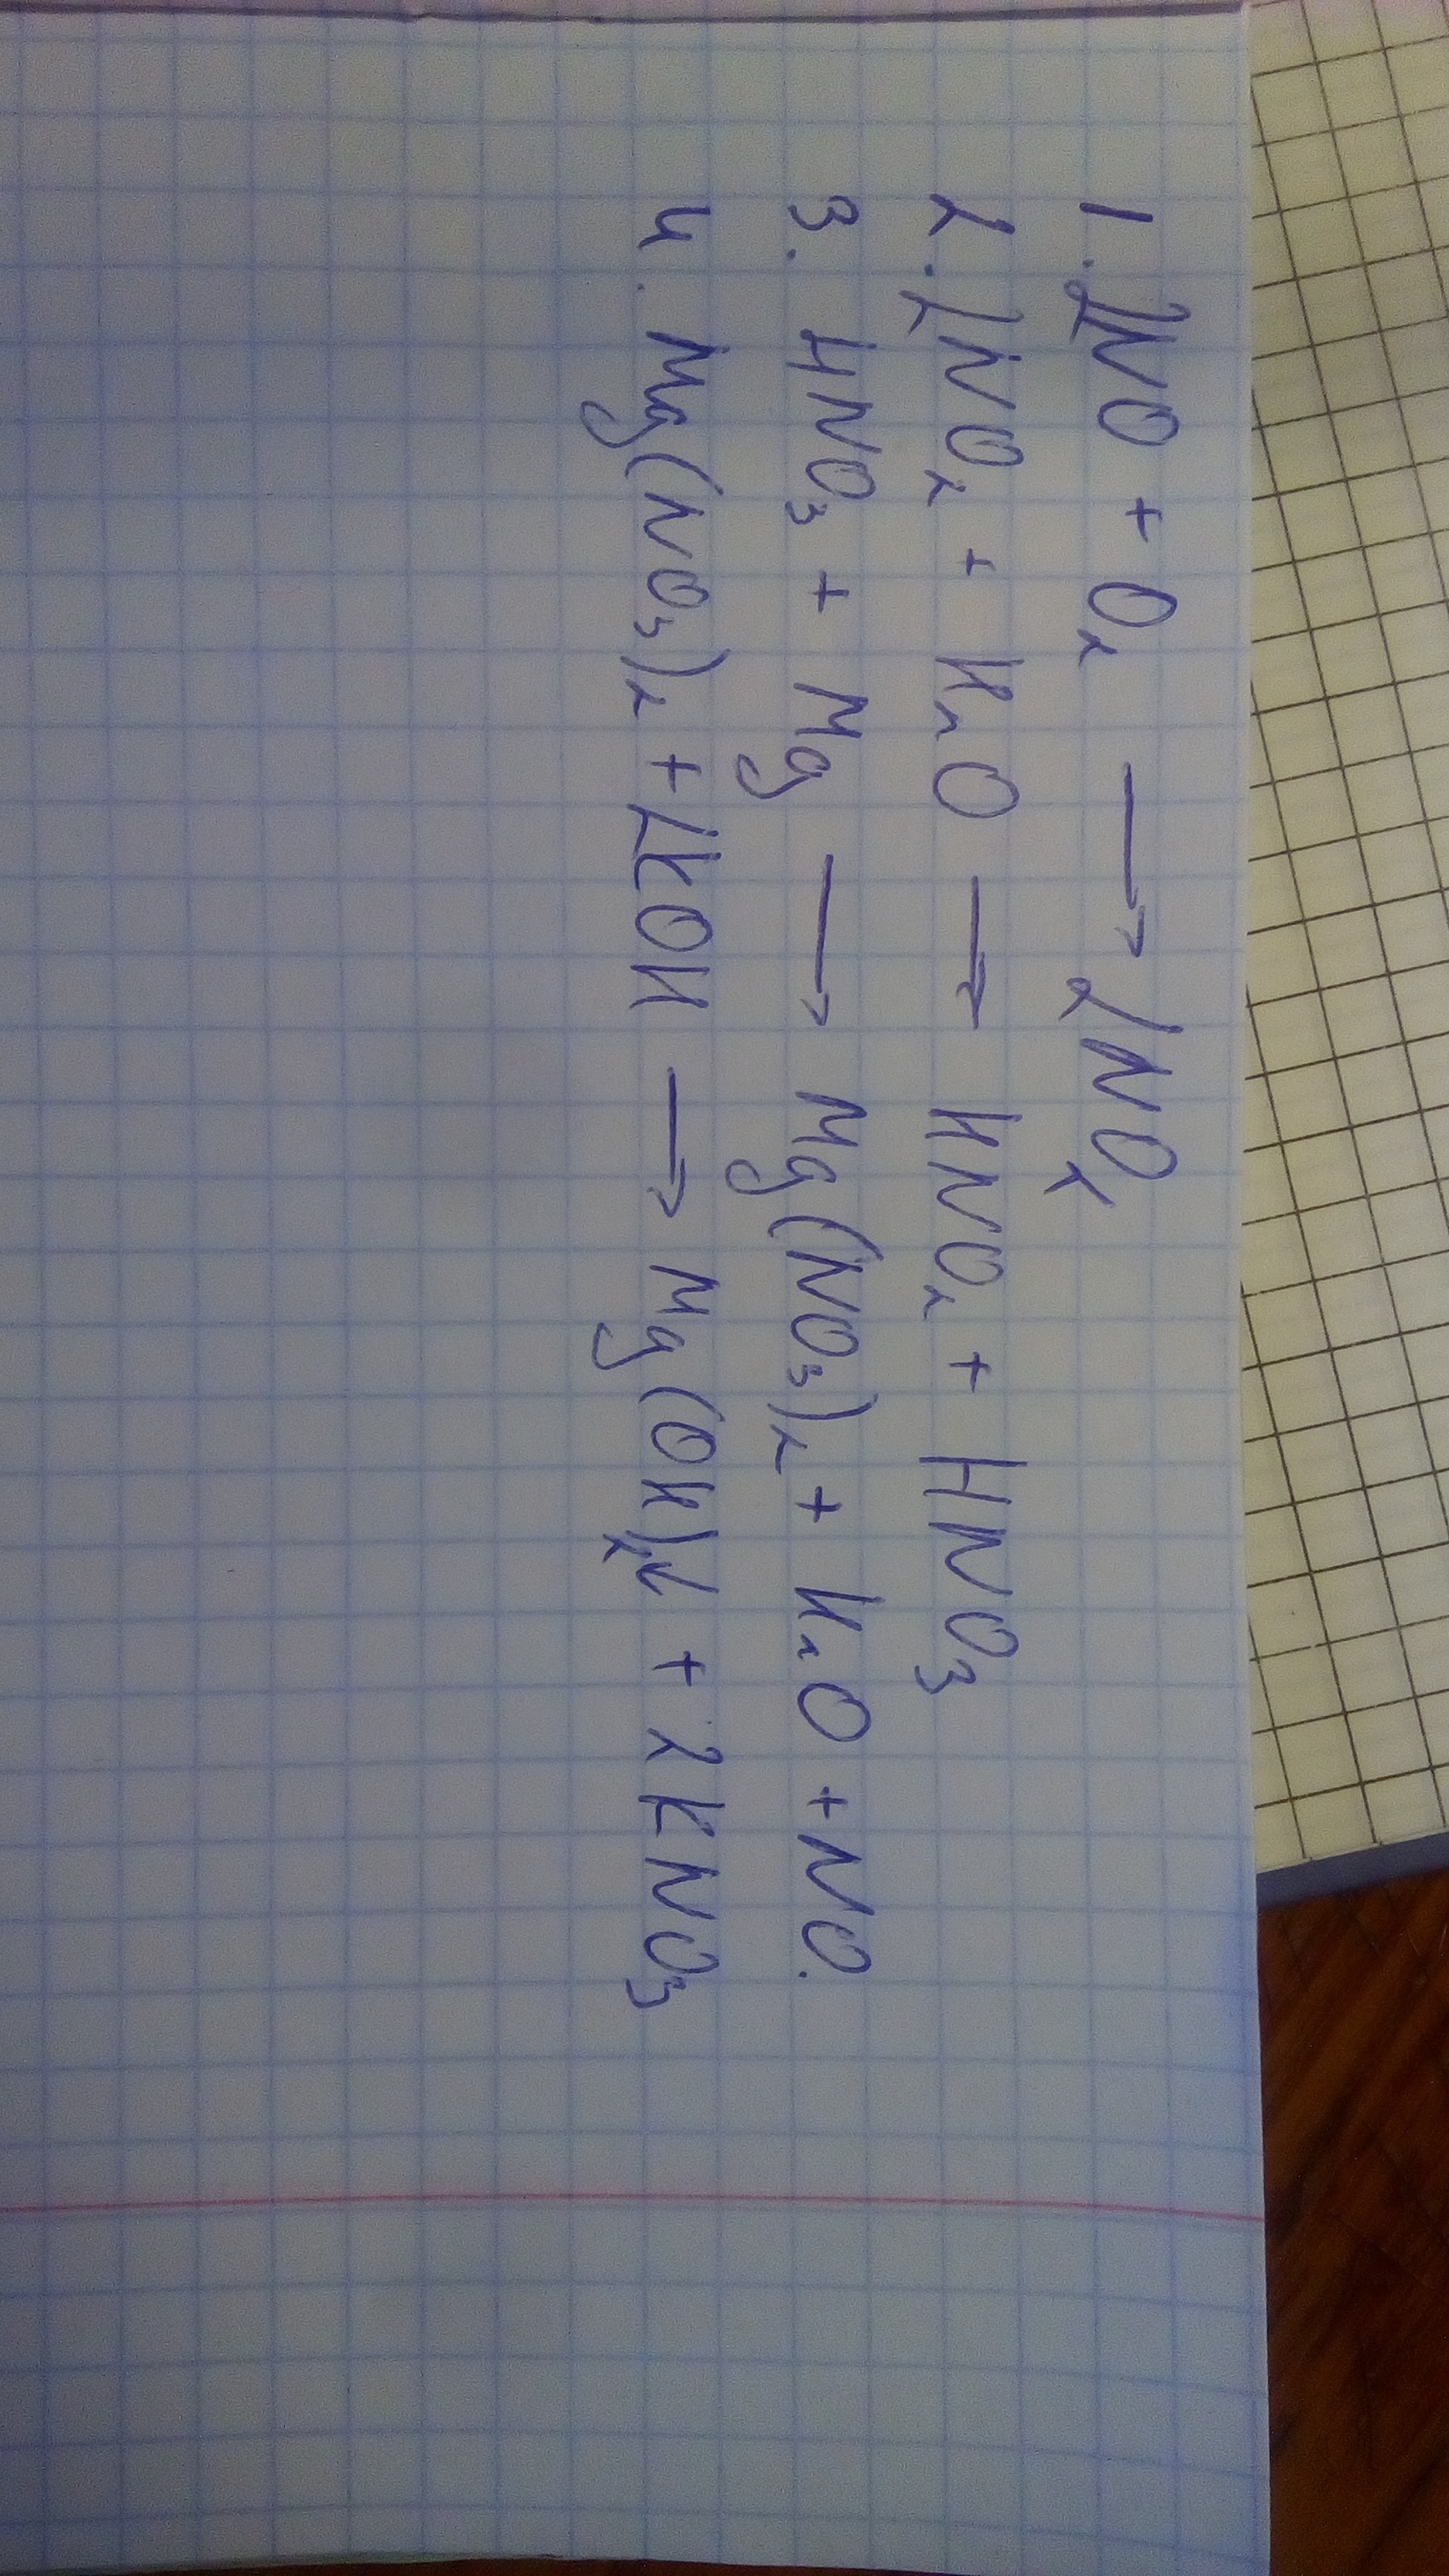 1. 2NO + O₂ → 2NO₂
2. 2NO₂ + H₂O → HNO₂ + HNO₃
3. HNO₃ + Mg → Mg(NO₃)₂ + H₂O + NO.
4. Mg(NO₃)₂ + 2KOH → Mg(OH)₂↓ + 2KNO₃